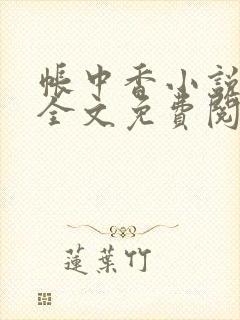 帳中香小說
全文免費閱
蓮葉竹